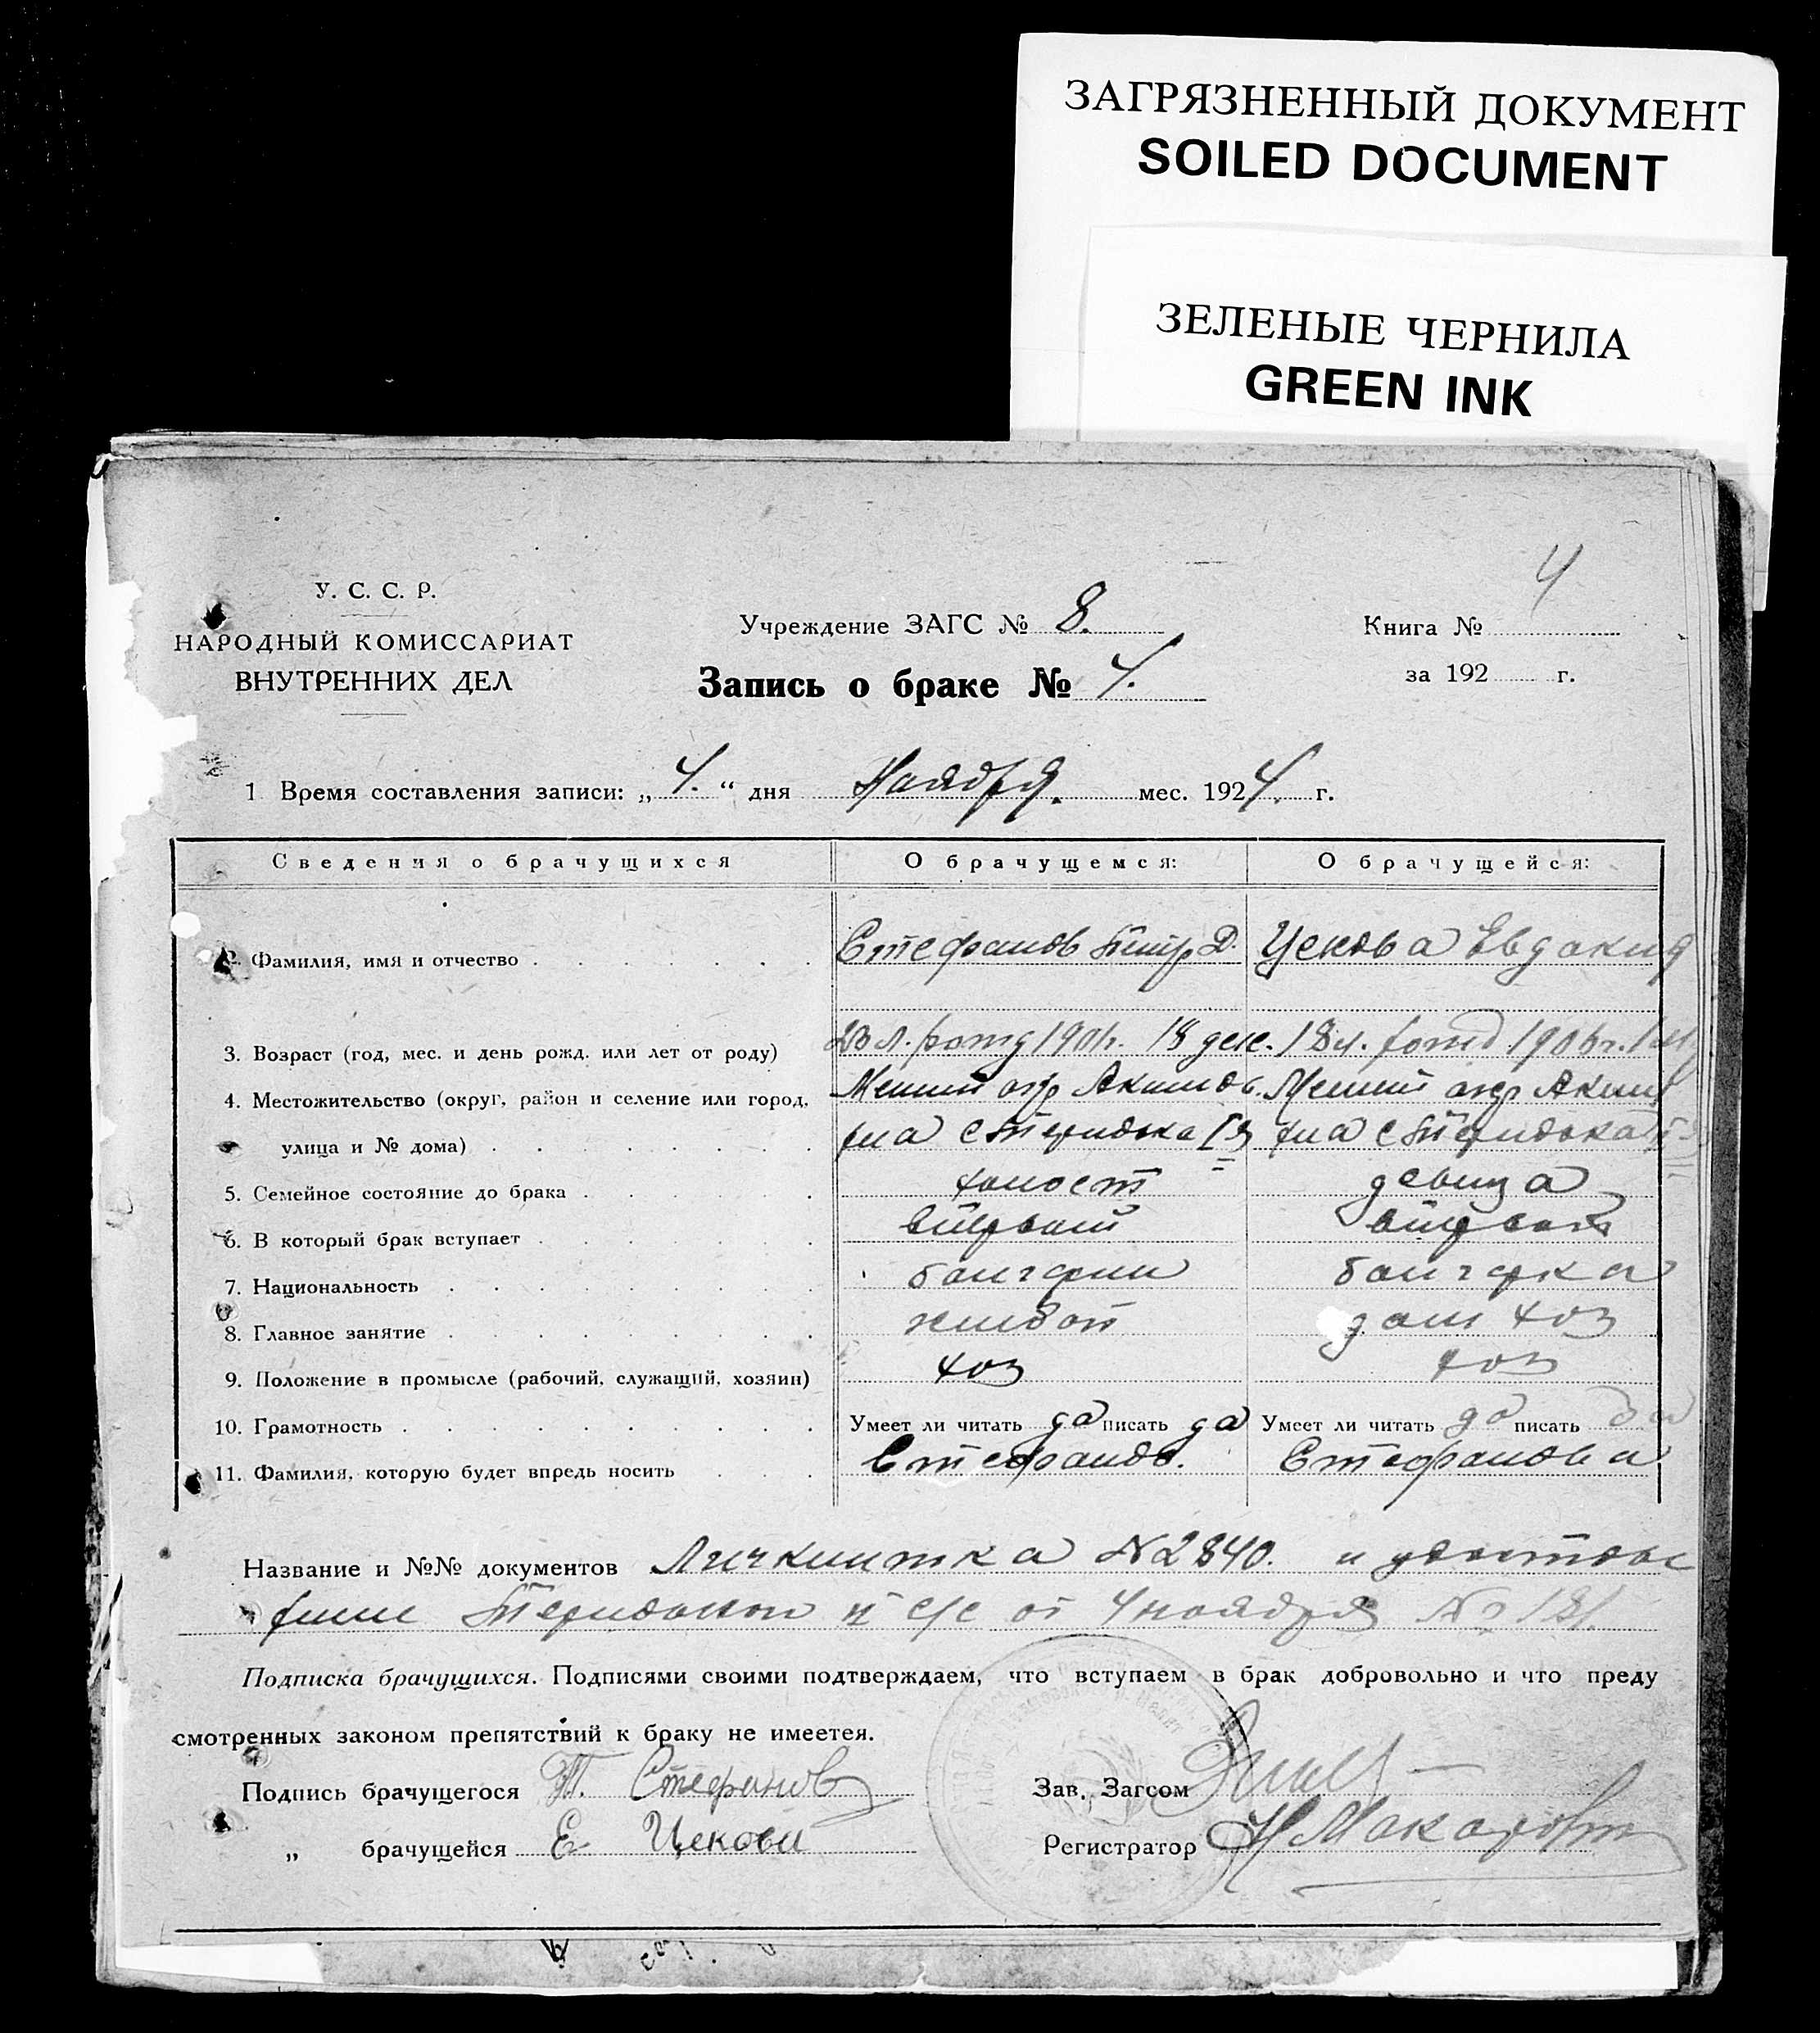 ЗАГРЯЗНЕННЫЙ ДОКУМЕНТ
SOILED DOCUMENT
ЗЕЛЕНЫЕ ЧЕРНИЛА
GREEN INK
4
У. С. С. Р.
НАРОДНЫЙ КОМИССАРИАТ
ВНУТРЕННИХ ДЕЛ
Учреждение ЗАГС № 8.
Запись о браке № 4.
Книга №
за 192 г.
1 Время составления записи: „ 4. “ дня Ноября. мес. 1924. г.
Сведения о брачущихся О брачущемся: О брачущейся:
2. Фамилия, имя и отчество Стефанов Петр Д. Цекова Евдокия
3. Возраст (год, мес. и день рожд. или лет от роду) 23 л. 18 дек. 18 л.
4. Местожительство (округ, район и селение или город, Мелит окр Акимов. Мелит окр Аким
улица и № дома)
5. Семейное состояние до брака холост девица
6. В который брак вступает
7. Национальность болгарин болгарка
8. Главное занятие хлебоп дом хоз
9. Положение в промысле (рабочий, служащий, хозяин) хоз хоз
10. Грамотность Умеет ли читать да писать да Умеет ли читать да писать да
11. Фамилия, которую будет впредь носить Стефанов. Стефанова
Название и №№ документов № 2840. и
с/с от 4 ноября № 181.
Подписка брачущихся. Подписями своими подтверждаем, что вступаем в брак добровольно и что преду
смотренных законом препятствий к браку не имеетея.
Подпись брачущегося П. Стефанов Зав. Загсом
„ брачущейся Е. Цекова Регистратор